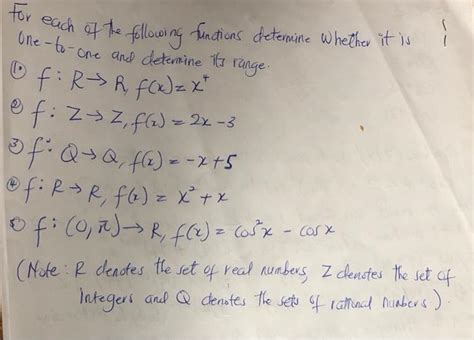 For each of the following functions determine whether it is
one-to-one and determine its range.
① f: R→R, f(x)=x⁴
② f: Z→Z, f(x) = 2x-3
③ f: Q→Q, f(x) = -x+5
④ f: R→R, f(x) = x²+x
⑤ f: (0,π)→R, f(x) = cos²x - cosx
(Note: R denotes the set of real numbers, Z denotes the set of
Integers and Q denotes the sets of rational numbers).